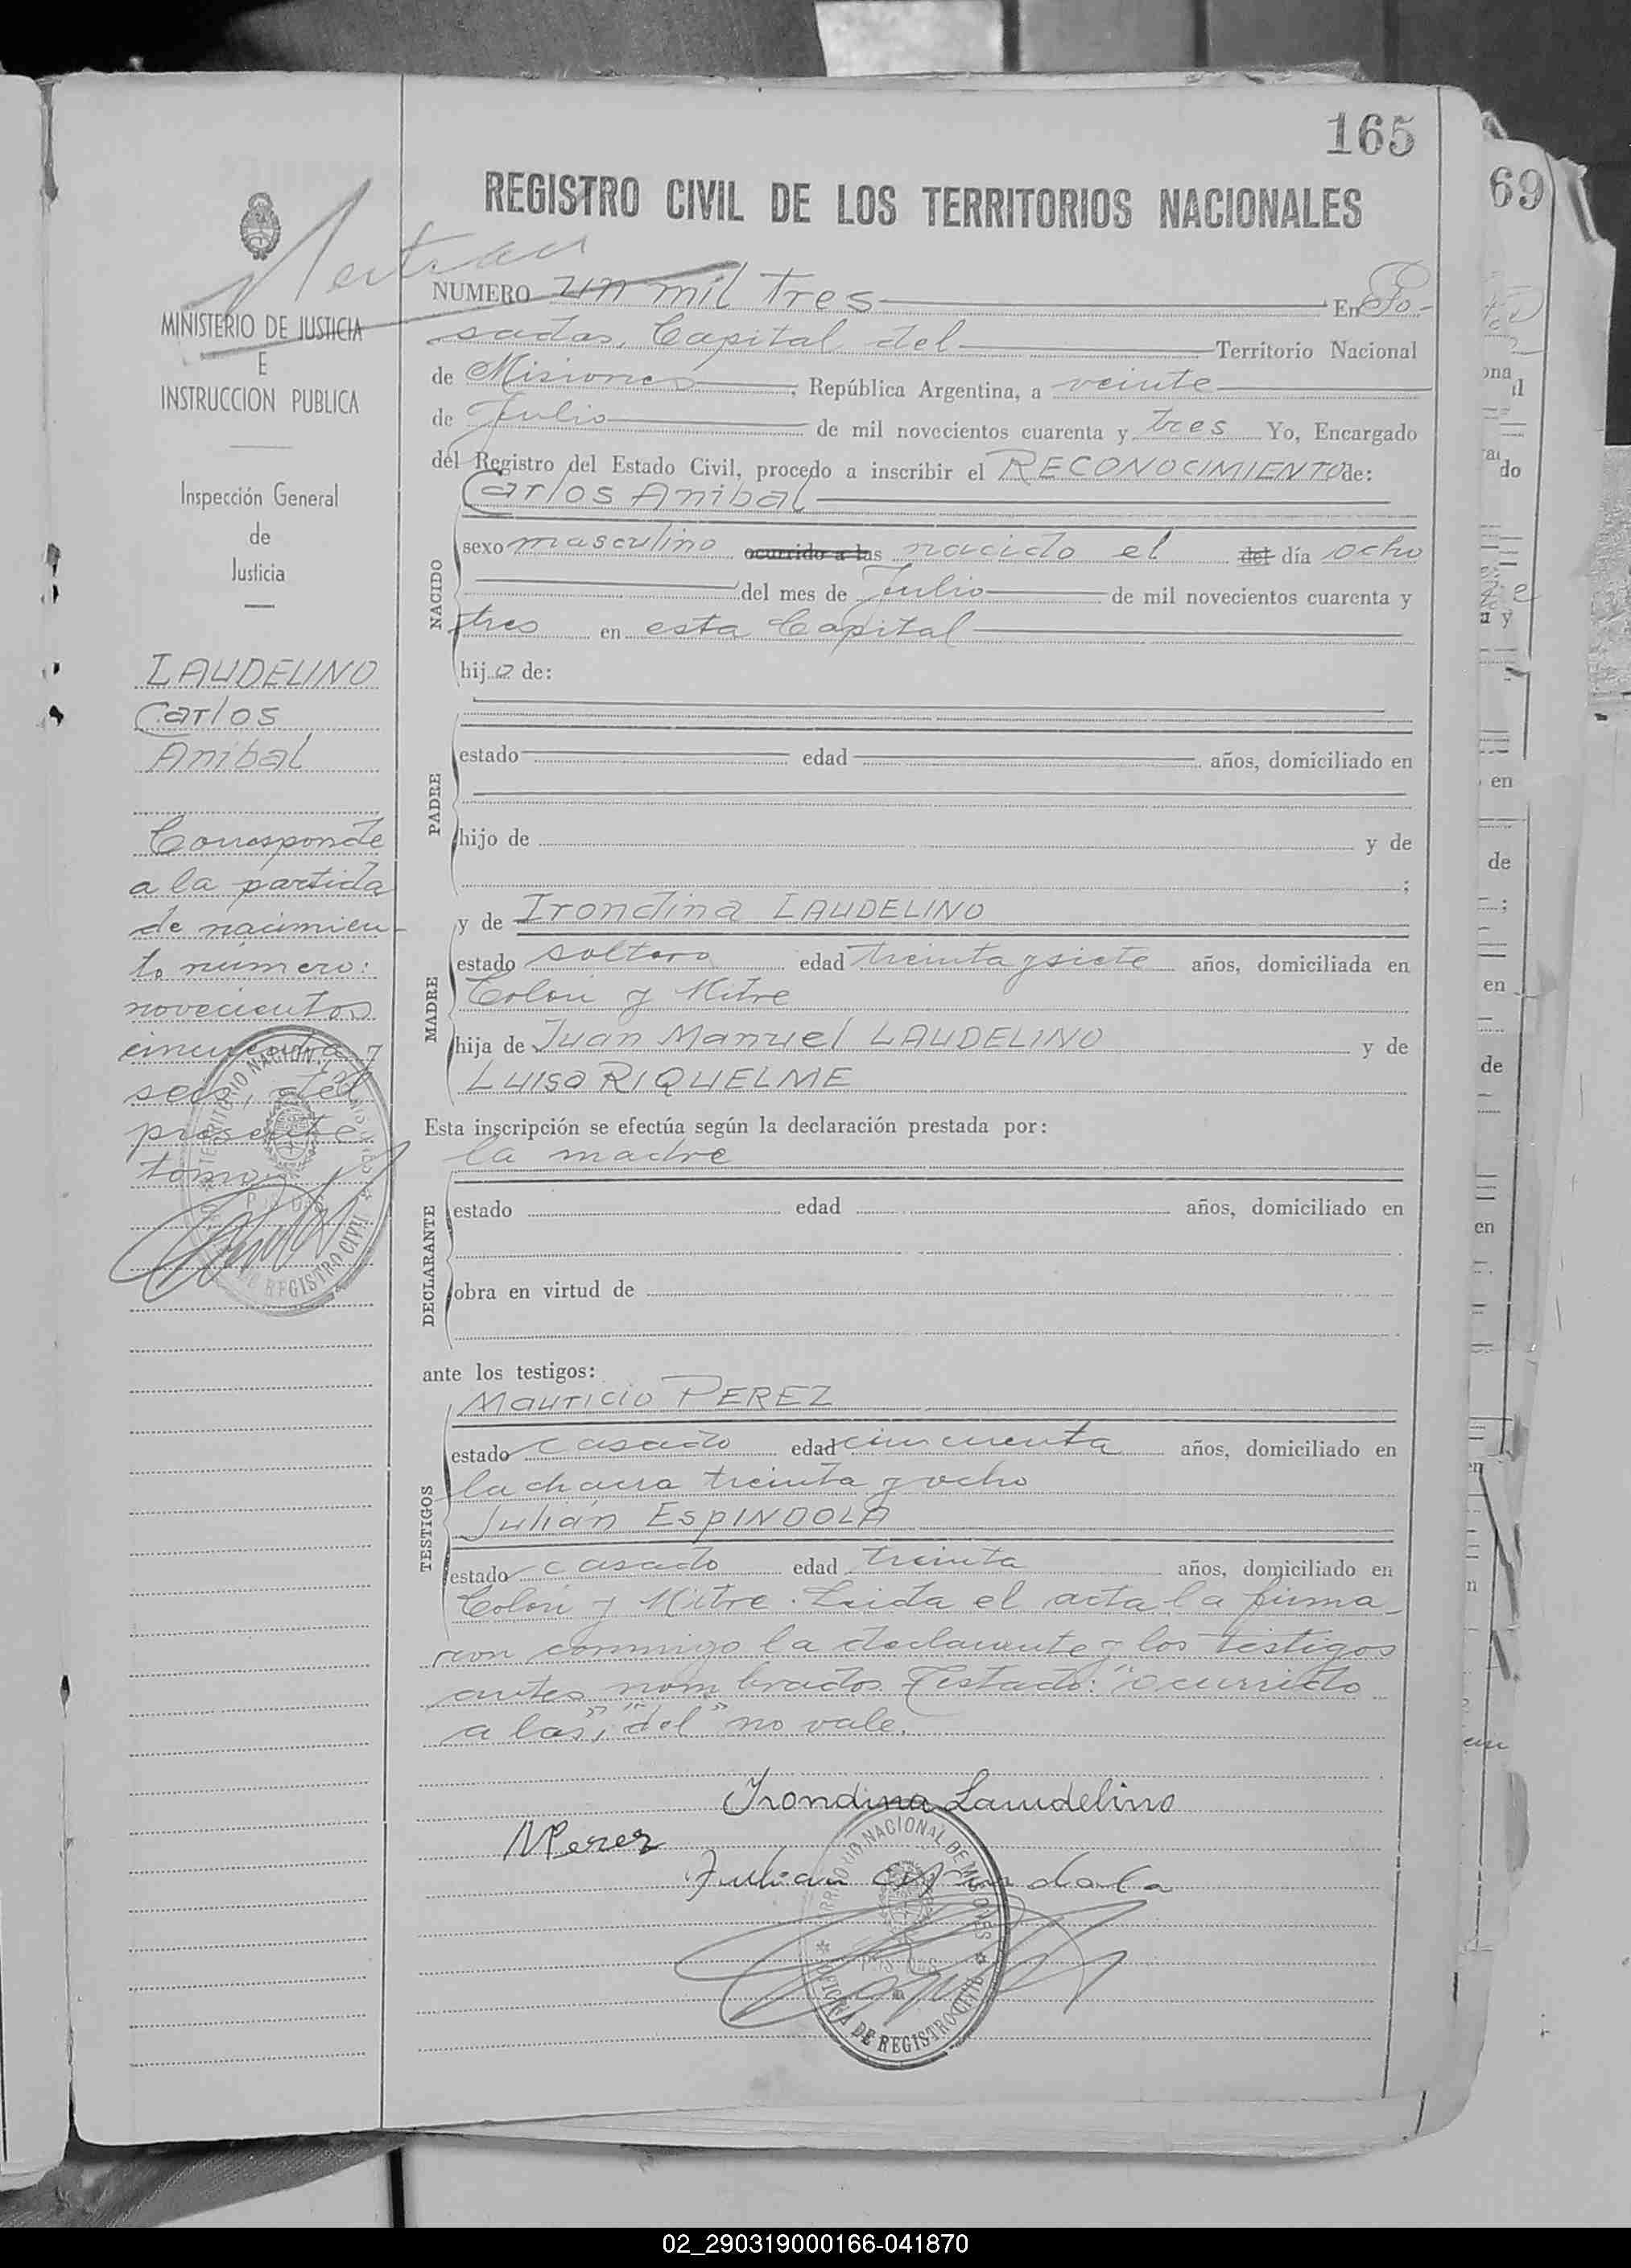 165
REGISTRO CIVIL DE LOS TERRITORIOS NACIONALES
69
MINISTERIO DE JUSTICIA
E
INSTRUCCION PUBLICA
Inspección General
de
Justicia
LAUDELINO
Carlos
Anibal
Corresponde
a la partida
de nacimien-
to número:
novecientos
cincuenta y
seis, del
presente
tomo.
NUMERO un mil tres En Po-
sadas, Capital del Territorio Nacional
de Misiones, República Argentina, a veinte
de Julio de mil novecientos cuarenta y tres Yo, Encargado
del Registro del Estado Civil, procedo a inscribir el RECONOCIMIENTO de:
Carlos Anibal
NACIDO
sexo masculino ocurrido a las nacido el del día ocho
del mes de Julio de mil novecientos cuarenta y
tres en esta Capital
hijo de:
PADRE
estado edad años, domiciliado en
hijo de y de
;
MADRE
y de Irondina LAUDELINO
estado soltera edad treinta y siete años, domiciliada en
Colón y Mitre
hija de Juan Manuel LAUDELINO y de
Luisa RIQUELME
Esta inscripción se efectúa según la declaración prestada por:
la madre
DECLARANTE
estado edad años, domiciliado en
obra en virtud de
ante los testigos:
TESTIGOS
Mauricio PEREZ
estado casado edad cincuenta años, domiciliado en
la chacra treinta y ocho
Julián ESPINDOLA
estado casado edad treinta años, domiciliado en
Colón y Mitre. Leida el acta la firma-
ron conmigo la declarante y los testigos
antes nombrados. Testado: "ocurrido
a las", "del" no vale.
Irondina Laudelino
MPerez
Julian Espindola
TERRITORIO NACIONAL DE MISIONES
OFICINA DE REGISTRO CIVIL
02_290319000166-041870